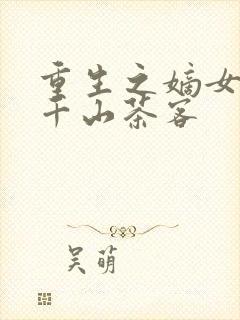 重生之嫡女
千山茶客
吴萌